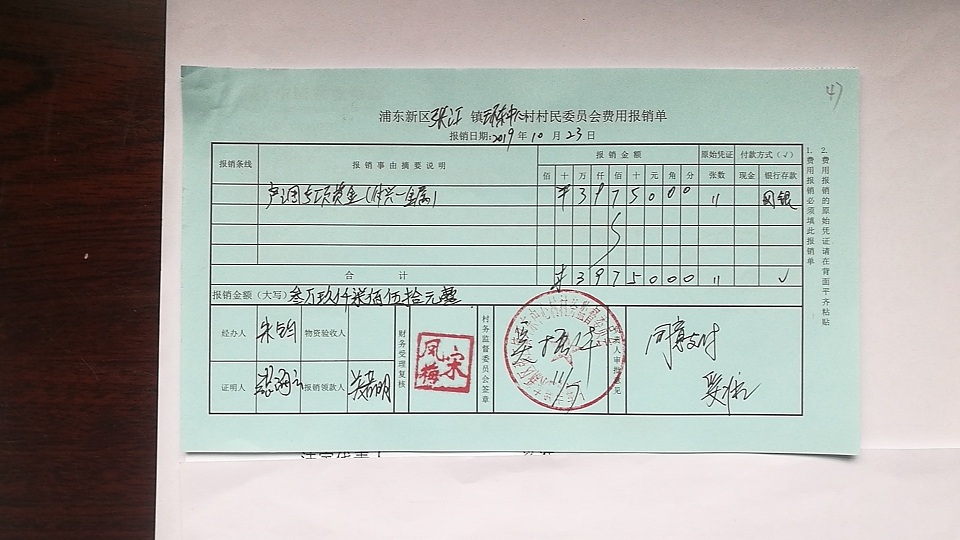 47
浦东新区张江镇环东中心村村民委员会费用报销单
报销日期:2019年10月23日
报销条线 报销事由摘要说明 报销金额 原始凭证 付款方式(√)
佰 十 万 仟 佰 十 元 角 分 张数 现金 银行存款
专项资金 ¥3975000 11 网银
合计 ¥3975000 11 √
报销金额(大写) 叁万玖仟柒佰伍拾元整
经办人 朱钧 物资验收人
证明人 报销领款人
财务受理复核
宋凤梅
村务监督委员会签章
11/5
负责人审批意见
同意支付
1.费用报销必须填此报销单
2.费用报销的原始凭证请在背面平齐粘贴